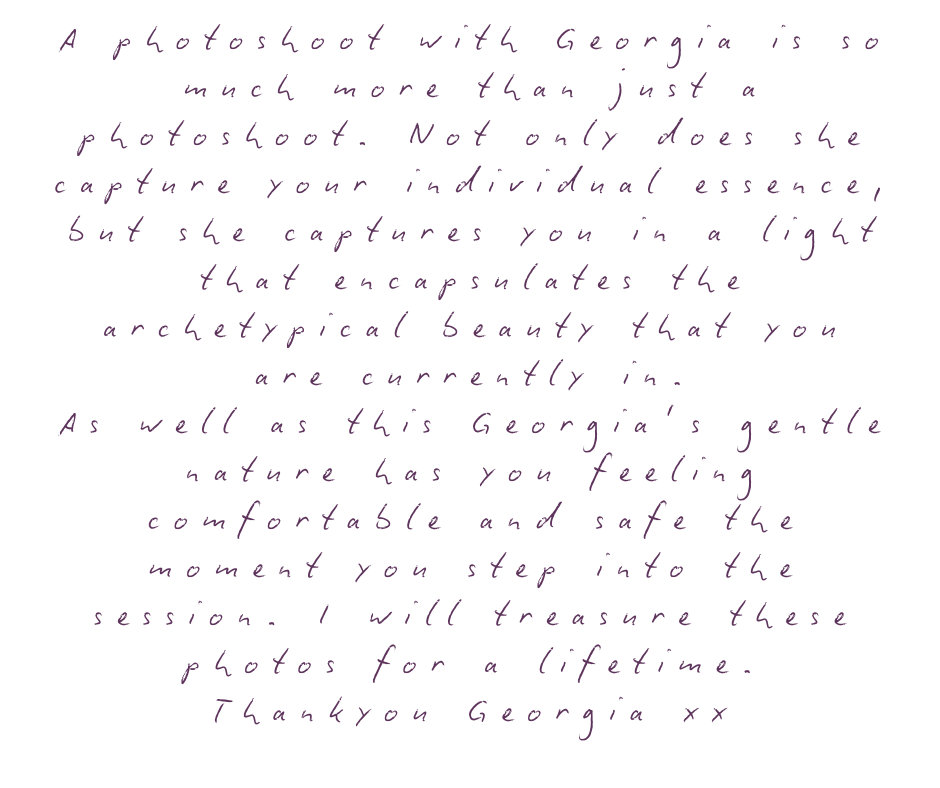 A photoshoot with Georgia is so
much more than just a
photoshoot. Not only does she
capture your individual essence,
but she captures you in a light
that encapsulates the
archetypical beauty that you
are currently in.
As well as this Georgia's gentle
nature has you feeling
comfortable and safe the
moment you step into the
session. I will treasure these
photos for a lifetime.
Thankyou Georgia xx